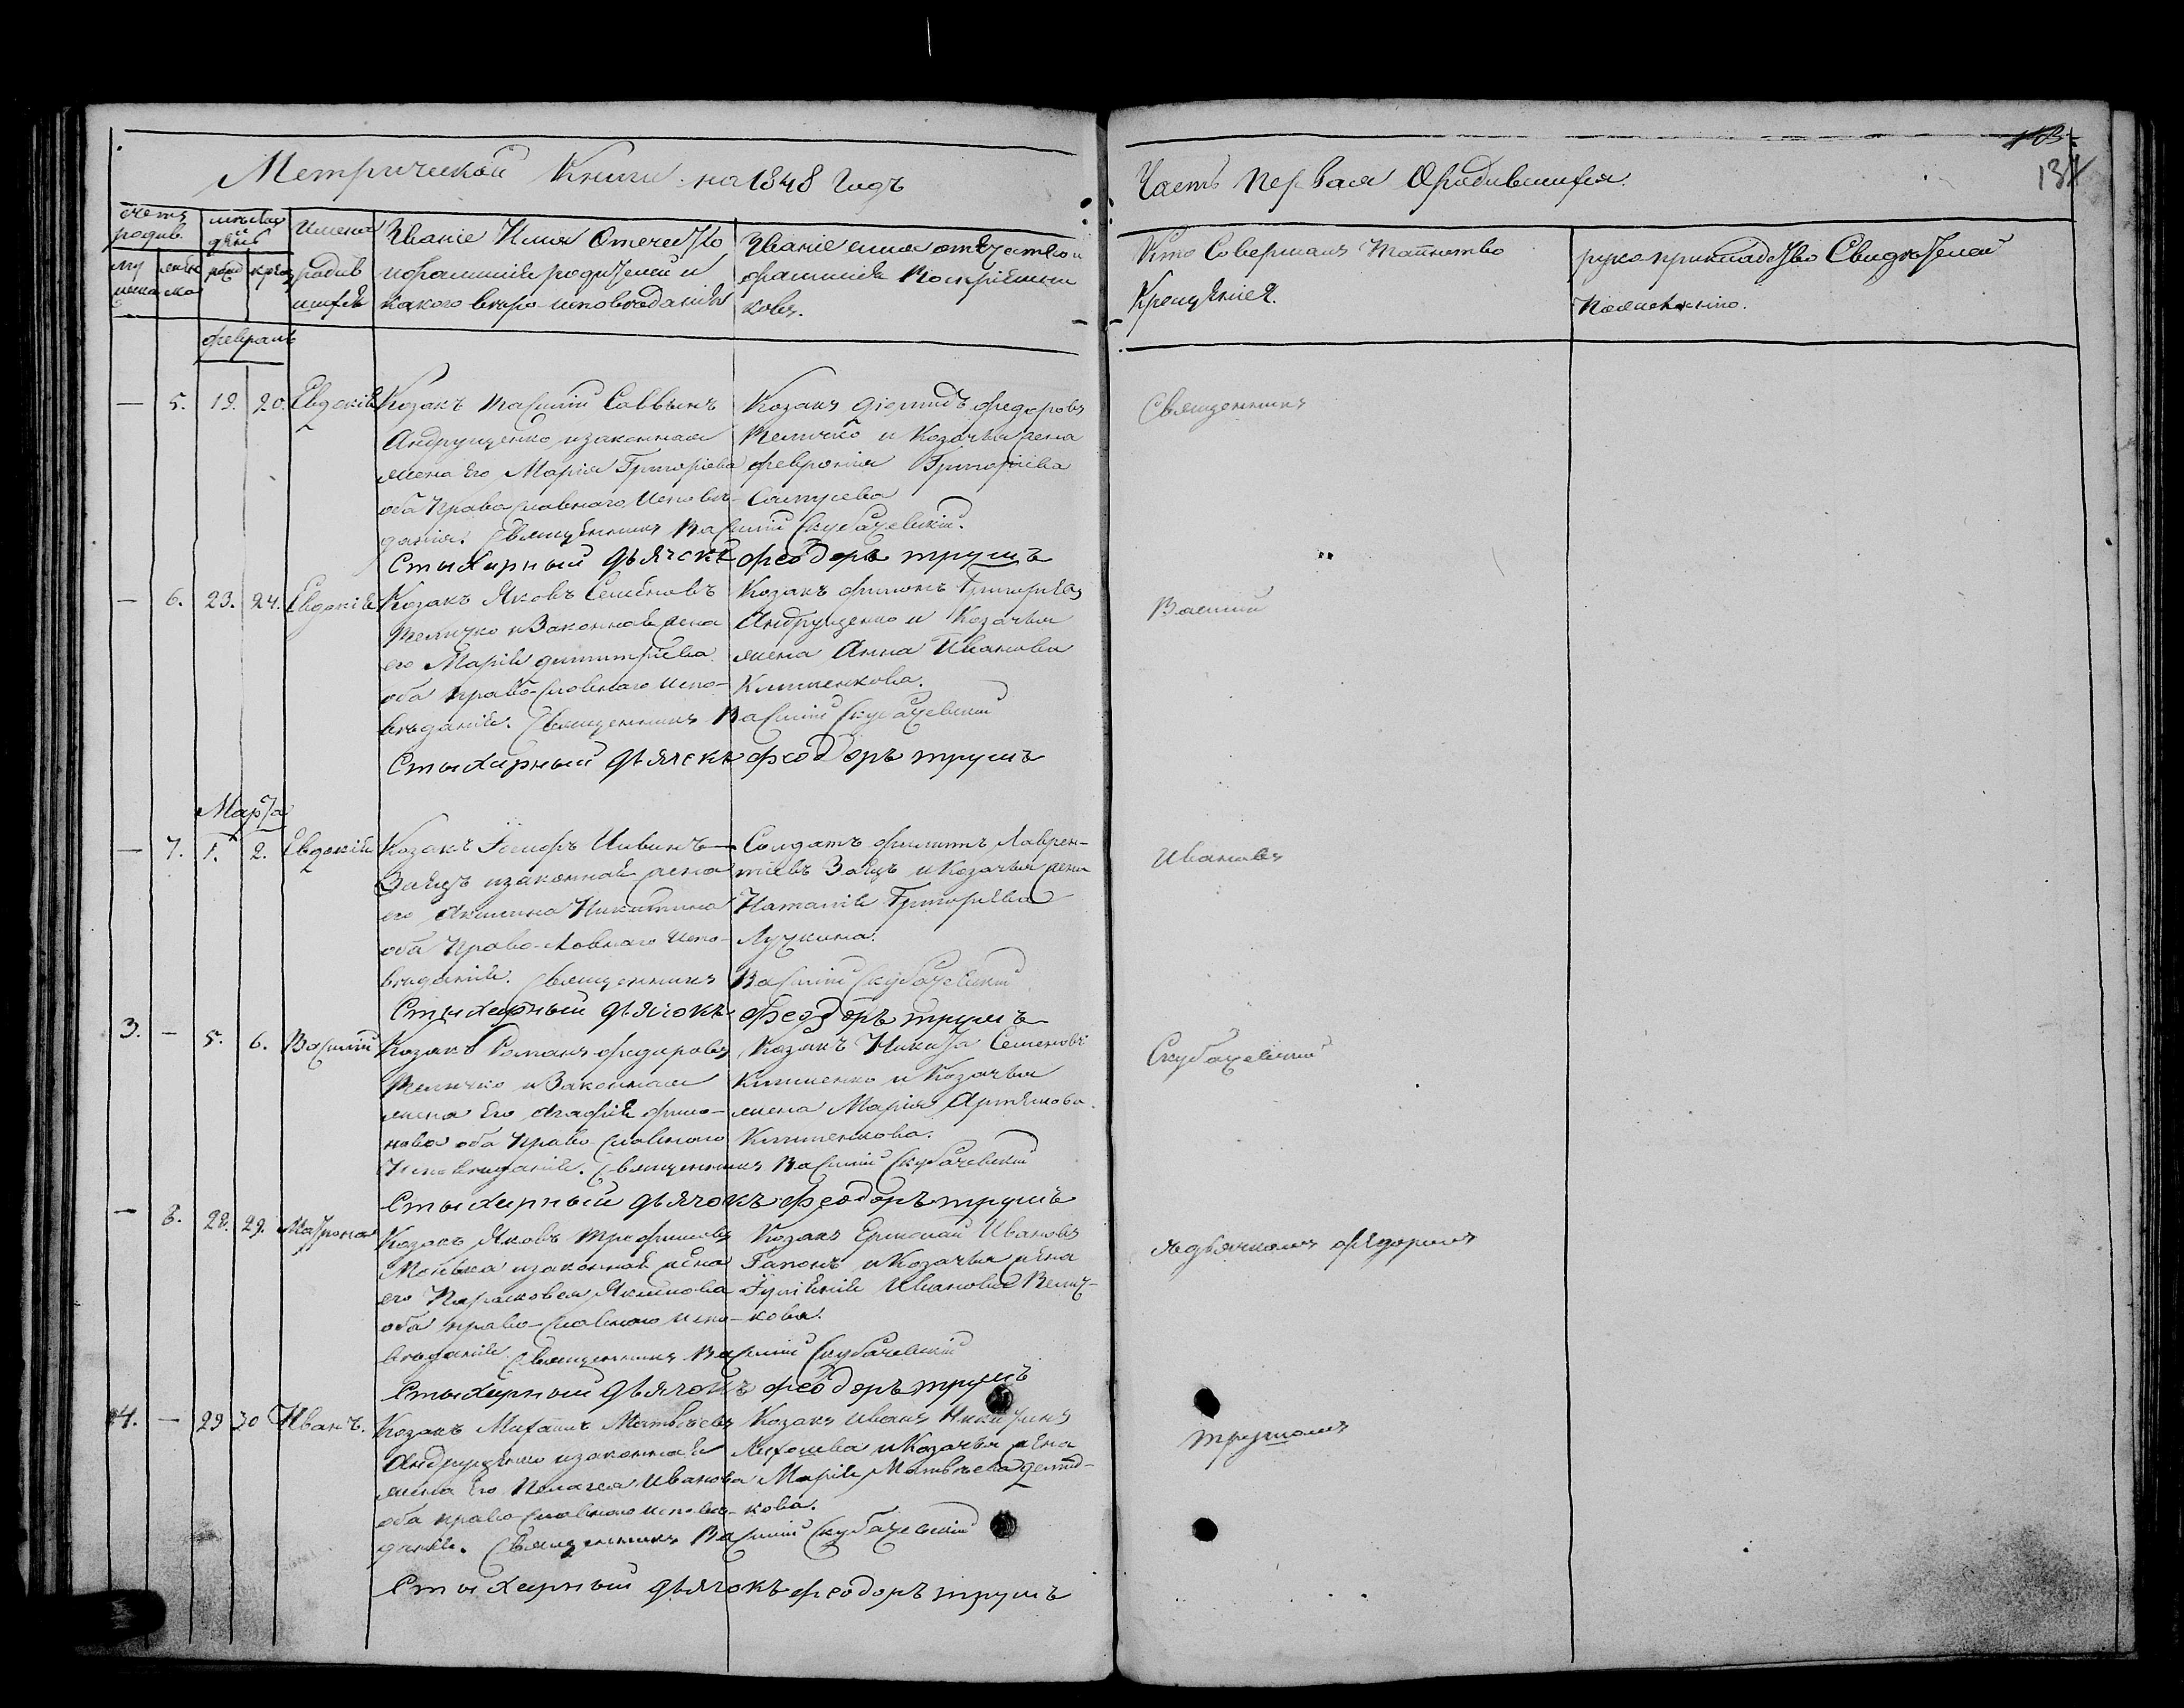 Метрической Книги на 1848 Годъ
Часть Первая О родившихся.
счетъ родив.
мѣсяц и день
Имена
родив
шихся
Званіе Имя Отечество
и фамилія родителей и
какого вѣроисповѣданія
Званіе имя отечество и
фамилія Воспріемни
ковъ.
Кто Совершалъ Таинство
Крещенія.
рукоприкладство Свидѣтелей
по желанію.
февраль
— 5. 19. 20. Евдокія
Козакъ Василій Саввинъ
Андрущенко и законная
жена Его Марія Григоріева
оба Православнаго Исповѣ-
данія. Священникъ Василій Скубачевскій.
Стыхарный дьячекъ феодоръ трушъ
Козакъ Діомидъ федоровъ
Величко и Козачья жена
феvронія Григоріева
Священникъ
— 6. 23. 24. Евдокія
Козакъ Яковъ Семеновъ
Величко и Законная жена
его Марія димитріева
оба право-славнаго испо-
вѣданія. Священникъ Василій Скубачевскій
Стыхарный дьячекъ феодоръ трушъ
Козакъ филонъ Григоріевъ
Андрущенко и Козачья
жена Анна Иванова
Клименкова.
Василій
Марта
— 7. 1. 2. Евдокія
Козакъ
Заецъ и законная жена
его Акилина Никитина
оба Право-славнаго испо-
вѣданія. Священникъ Василій Скубачевскій
Стыхарный дьячокъ феодоръ трушъ
Солдатъ филипъ Лаврен-
тіевъ Заецъ и Козачья жена
Наталія Григоріева
Лучкина.
Ивановъ
3. — 5. 6. Василій
Козакъ Романъ федоровъ
Величко и Законная
жена Его Агафія фило-
нова оба Право-славнаго
Исповѣданія. Священникъ Василій Скубачевскій
Стыхарный дьячокъ феодоръ трушъ
Козакъ Никита Семеновъ
Клименко и Козачья
жена Марія Артемова
Клименкова.
Скубачевскій
— 8. 28. 29. Матрона
Козакъ Яковъ Трофимовъ
и законная жена
его Парасковея Якимова
оба право-славнаго испо-
вѣданія. Священникъ Василій Скубачевскій
Стыхарный дьячокъ феодоръ трушъ
Козакъ Ермолай Ивановъ
Гапонъ и Козачья жена
Иванова Велич-
кова.
съ дьячкомъ федоромъ
4. — 29 30 Иванъ.
Козакъ Михаилъ Матвѣевъ
Андрущенко и законная
жена Его Пелагея Иванова
оба право-славнаго исповѣ-
данія. Священникъ Василій Скубачевскій
Стыхарный дьячокъ феодоръ трушъ
Козакъ Иванъ Никитинъ
и Козачья жена
Марія Матвѣева
кова.
трушомъ